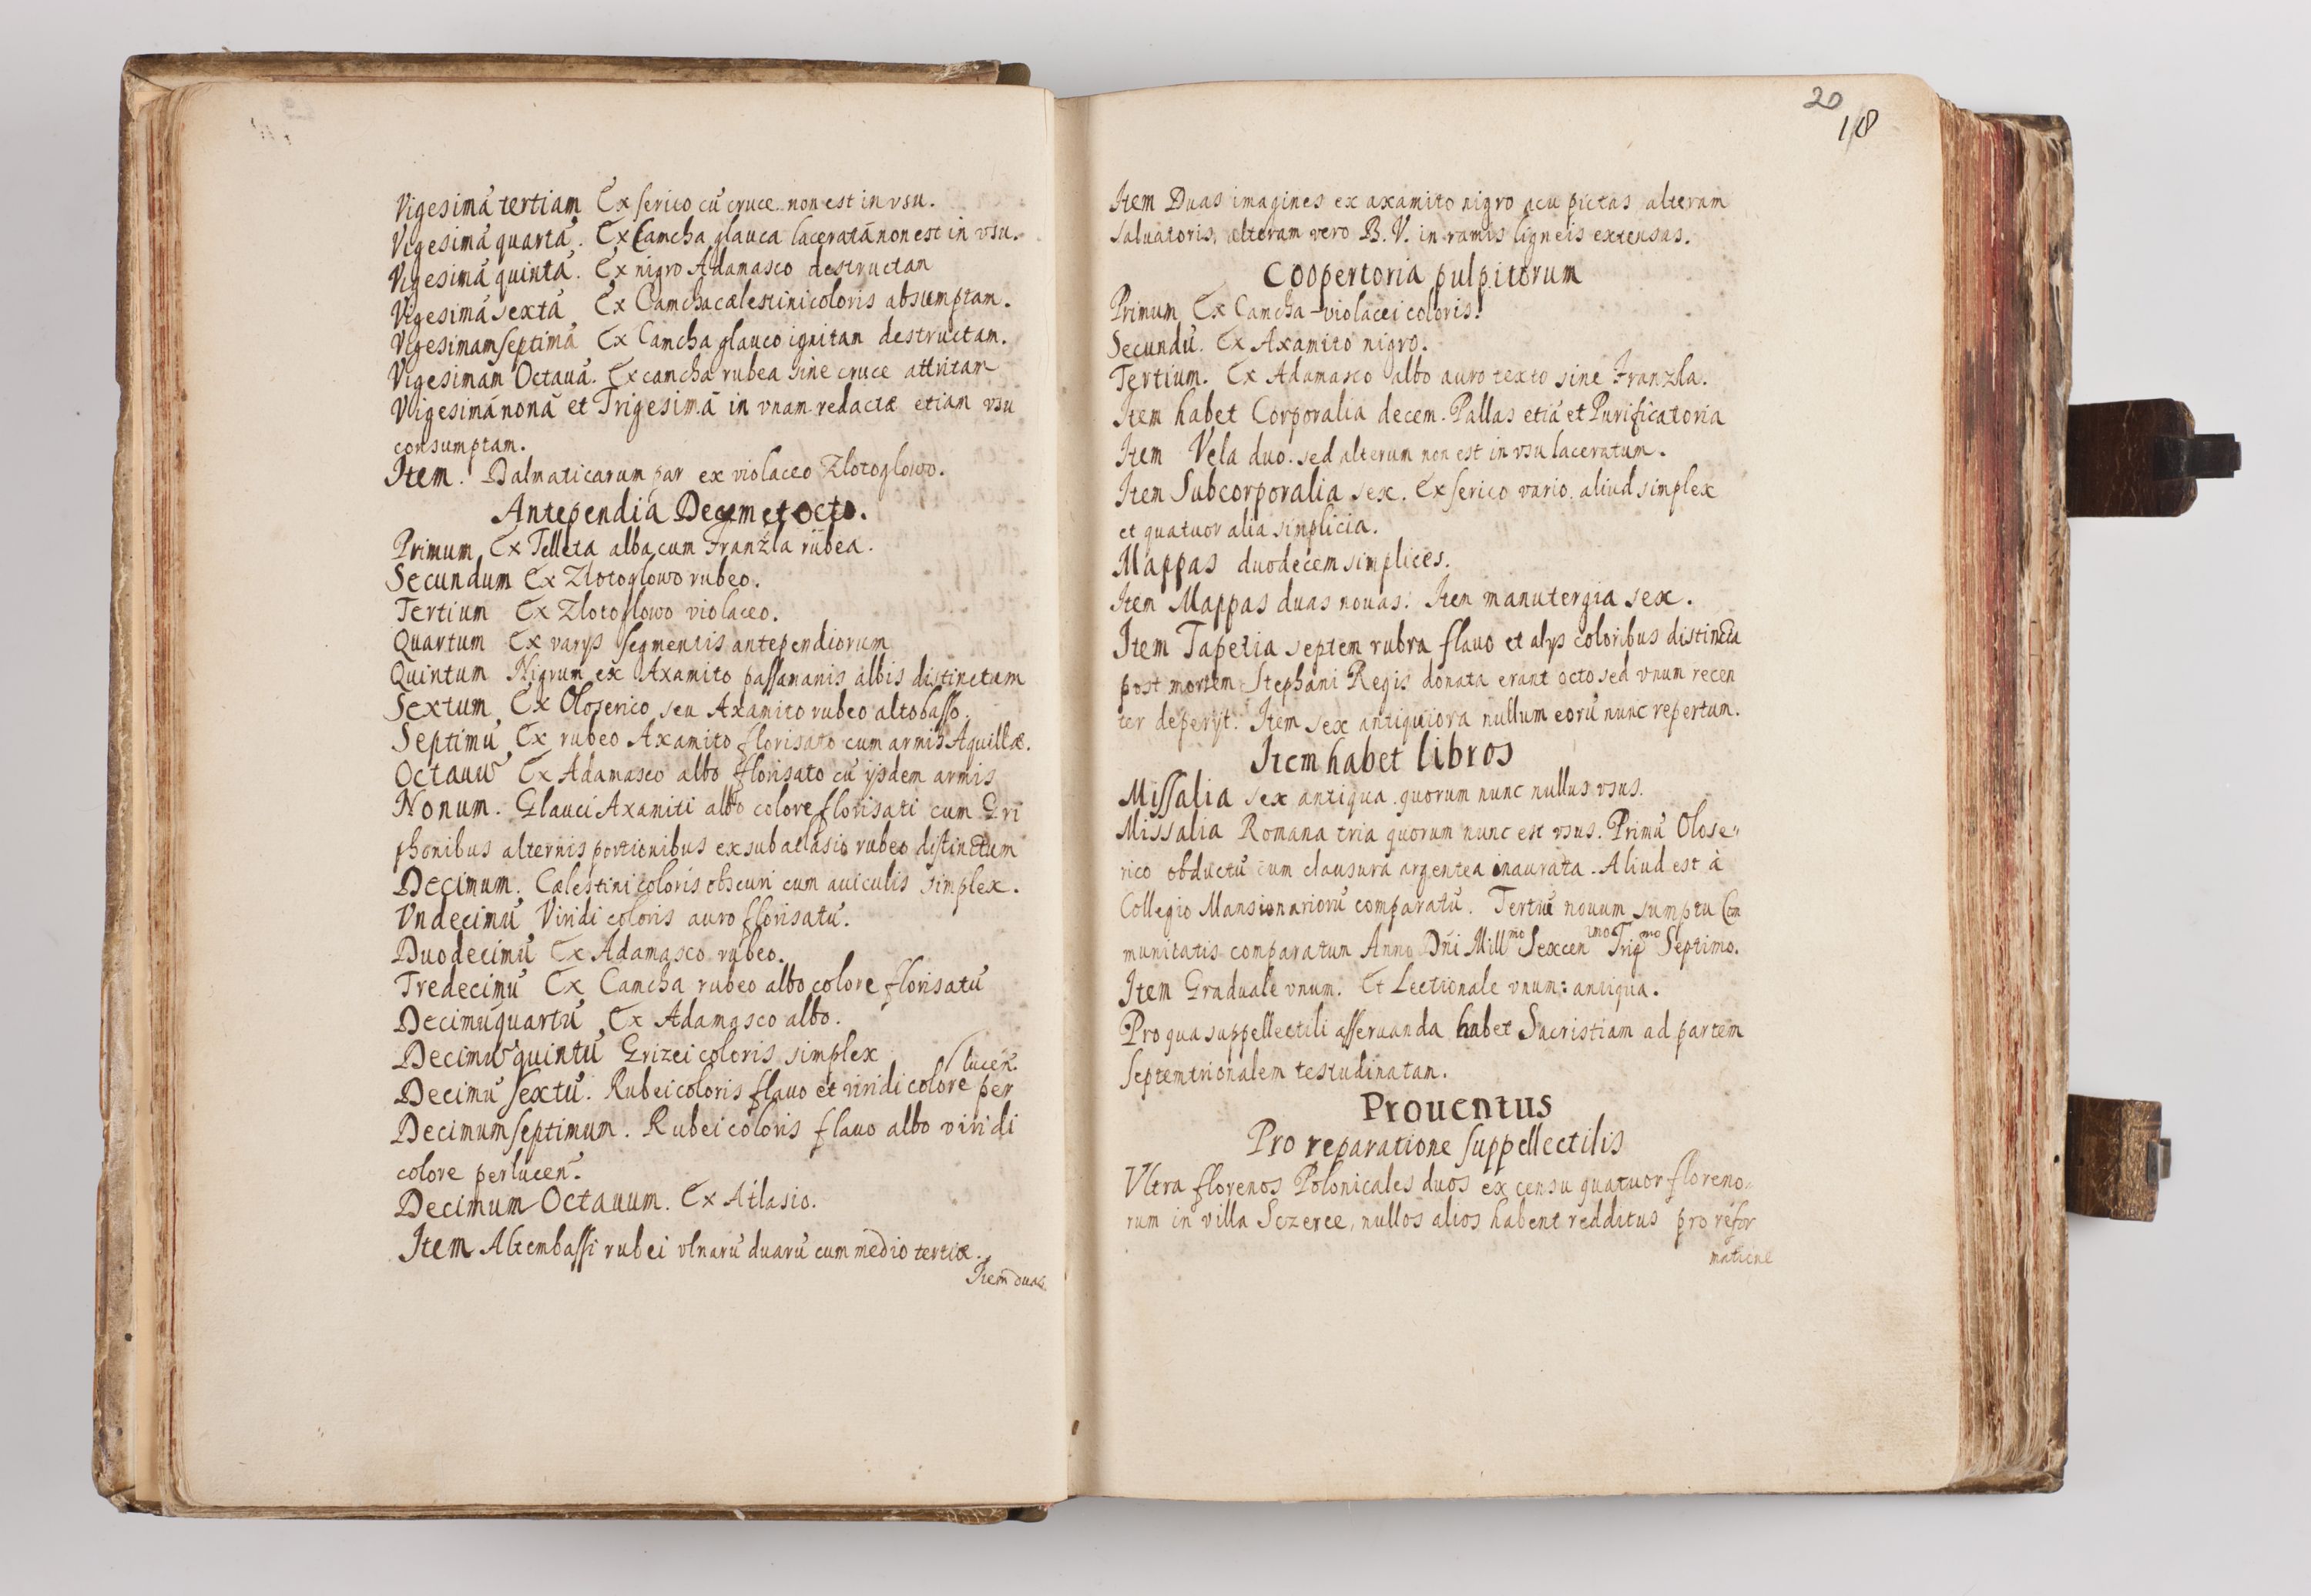 Vigesimā tertiam Ex serico cū cruce non est in vsu.
Vigesimā quartā. Ex Camcha glauca laceratā non est in vsu.
Vigesimā quintā. Ex nigro Adamasco destructan
Vigesimā sextā Ex Camcha cælestini coloris absumptam.
Vigesimam septimā Ex Camcha glauco ignitan destructam.
Vigesimam Octauā. Ex camcha rubea sine cruce attritam
Vigesimā nonā et Trigesimā in vnam redactæ etiam vsu
consumptam.
Item. Dalmaticarum par ex violaceo Zlotoglowo.
Antependia Decem et octo.
Primum Ex Telleta alba cum Franzla rubea.
Secundum Ex Zlotoglowo rubeo.
Tertium Ex Zlotoglowo violaceo.
Quartum Ex varys segmentis antependiorum
Quintum Nigrum ex Axamito passamanis albis distinctum
Sextum Ex Oloserico seu Axamito rubeo altobasso.
Septimū Ex rubeo Axamito florisato cum armis Aquillæ.
Octauū Ex Adamasco albo florisato cū ijsdem armis
Nonum. Glauci Axamiti albo colore florisati cum Gri
phonibus alternis portionibus ex subatlasio rubeo distinctum
Decimum. Cælestini coloris obscuri cum auiculis simplex.
Vndecimū Viridi coloris auro florisatū.
Duodecimū Ex Adamasco rubeo.
Tredecimū Ex Camcha rubeo albo colore florisatū
Decimūquartū Ex Adamasco albo.
Decimū quintū Grizei coloris simplex
lucen̄.
Decimū sextū. Rubei coloris flauo et viridi colore per
Decimum septimum. Rubei coloris flauo albo viridi
colore perlucen̄.
Decimum Octauum. Ex Atlasio.
Item Altembassi rubei vlnarū duarū cum medio tertiæ.
Item duas
20
118
Item Duas imagines ex axamito nigro acu pictas alteram
Saluatoris, alteram vero B. V. in ramis ligneis extensas.
Coopertoria pulpitorum
Primum Ex Camcha violacei coloris.
Secundū. Ex Axamito nigro.
Tertium. Ex Adamasco albo auro texto sine Franzla.
Item habet Corporalia decem. Pallas etiā et Purificatoria
Item Vela duo. sed alterum non est in vsu laceratum.
Item Subcorporalia sex. Ex serico vario. aliud simplex
et quatuor alia simplicia.
Mappas duodecem simplices.
Item Mappas duas nouas. Item manutergia sex.
Item Tapetia septem rubra flauo et alys coloribus distincta
post mortem Stephani Regis donata erant octo sed vnum recen
ter deperyt. Item sex antiquiora nullum eorū nunc repertum.
Item habet libros
Missalia sex antiqua. quorum nunc nullus vsus.
Missalia Romana tria quorum nunc est vsus. Primū Olose„
rico obductū cum clausura argentea inaurata. Aliud est à
Collegio Mansionariorū comparatū. Tertiū nouum sumptu Com
munitatis comparatum Anno Dn̄i Mill^mo Sexcen^mo Trig^mo Septimo.
Item Graduale vnum. Et Lectionale vnum: antiqua.
Pro qua suppellectili asseruanda habet Sacristiam ad partem
Septemtrionalem testudinatam.
Prouentus
Pro reparatione suppellectilis
Vltra florenos Polonicales duos ex censu quatuor floreno„
rum in villa Sczerce, nullos alios habent redditus pro refor
matione